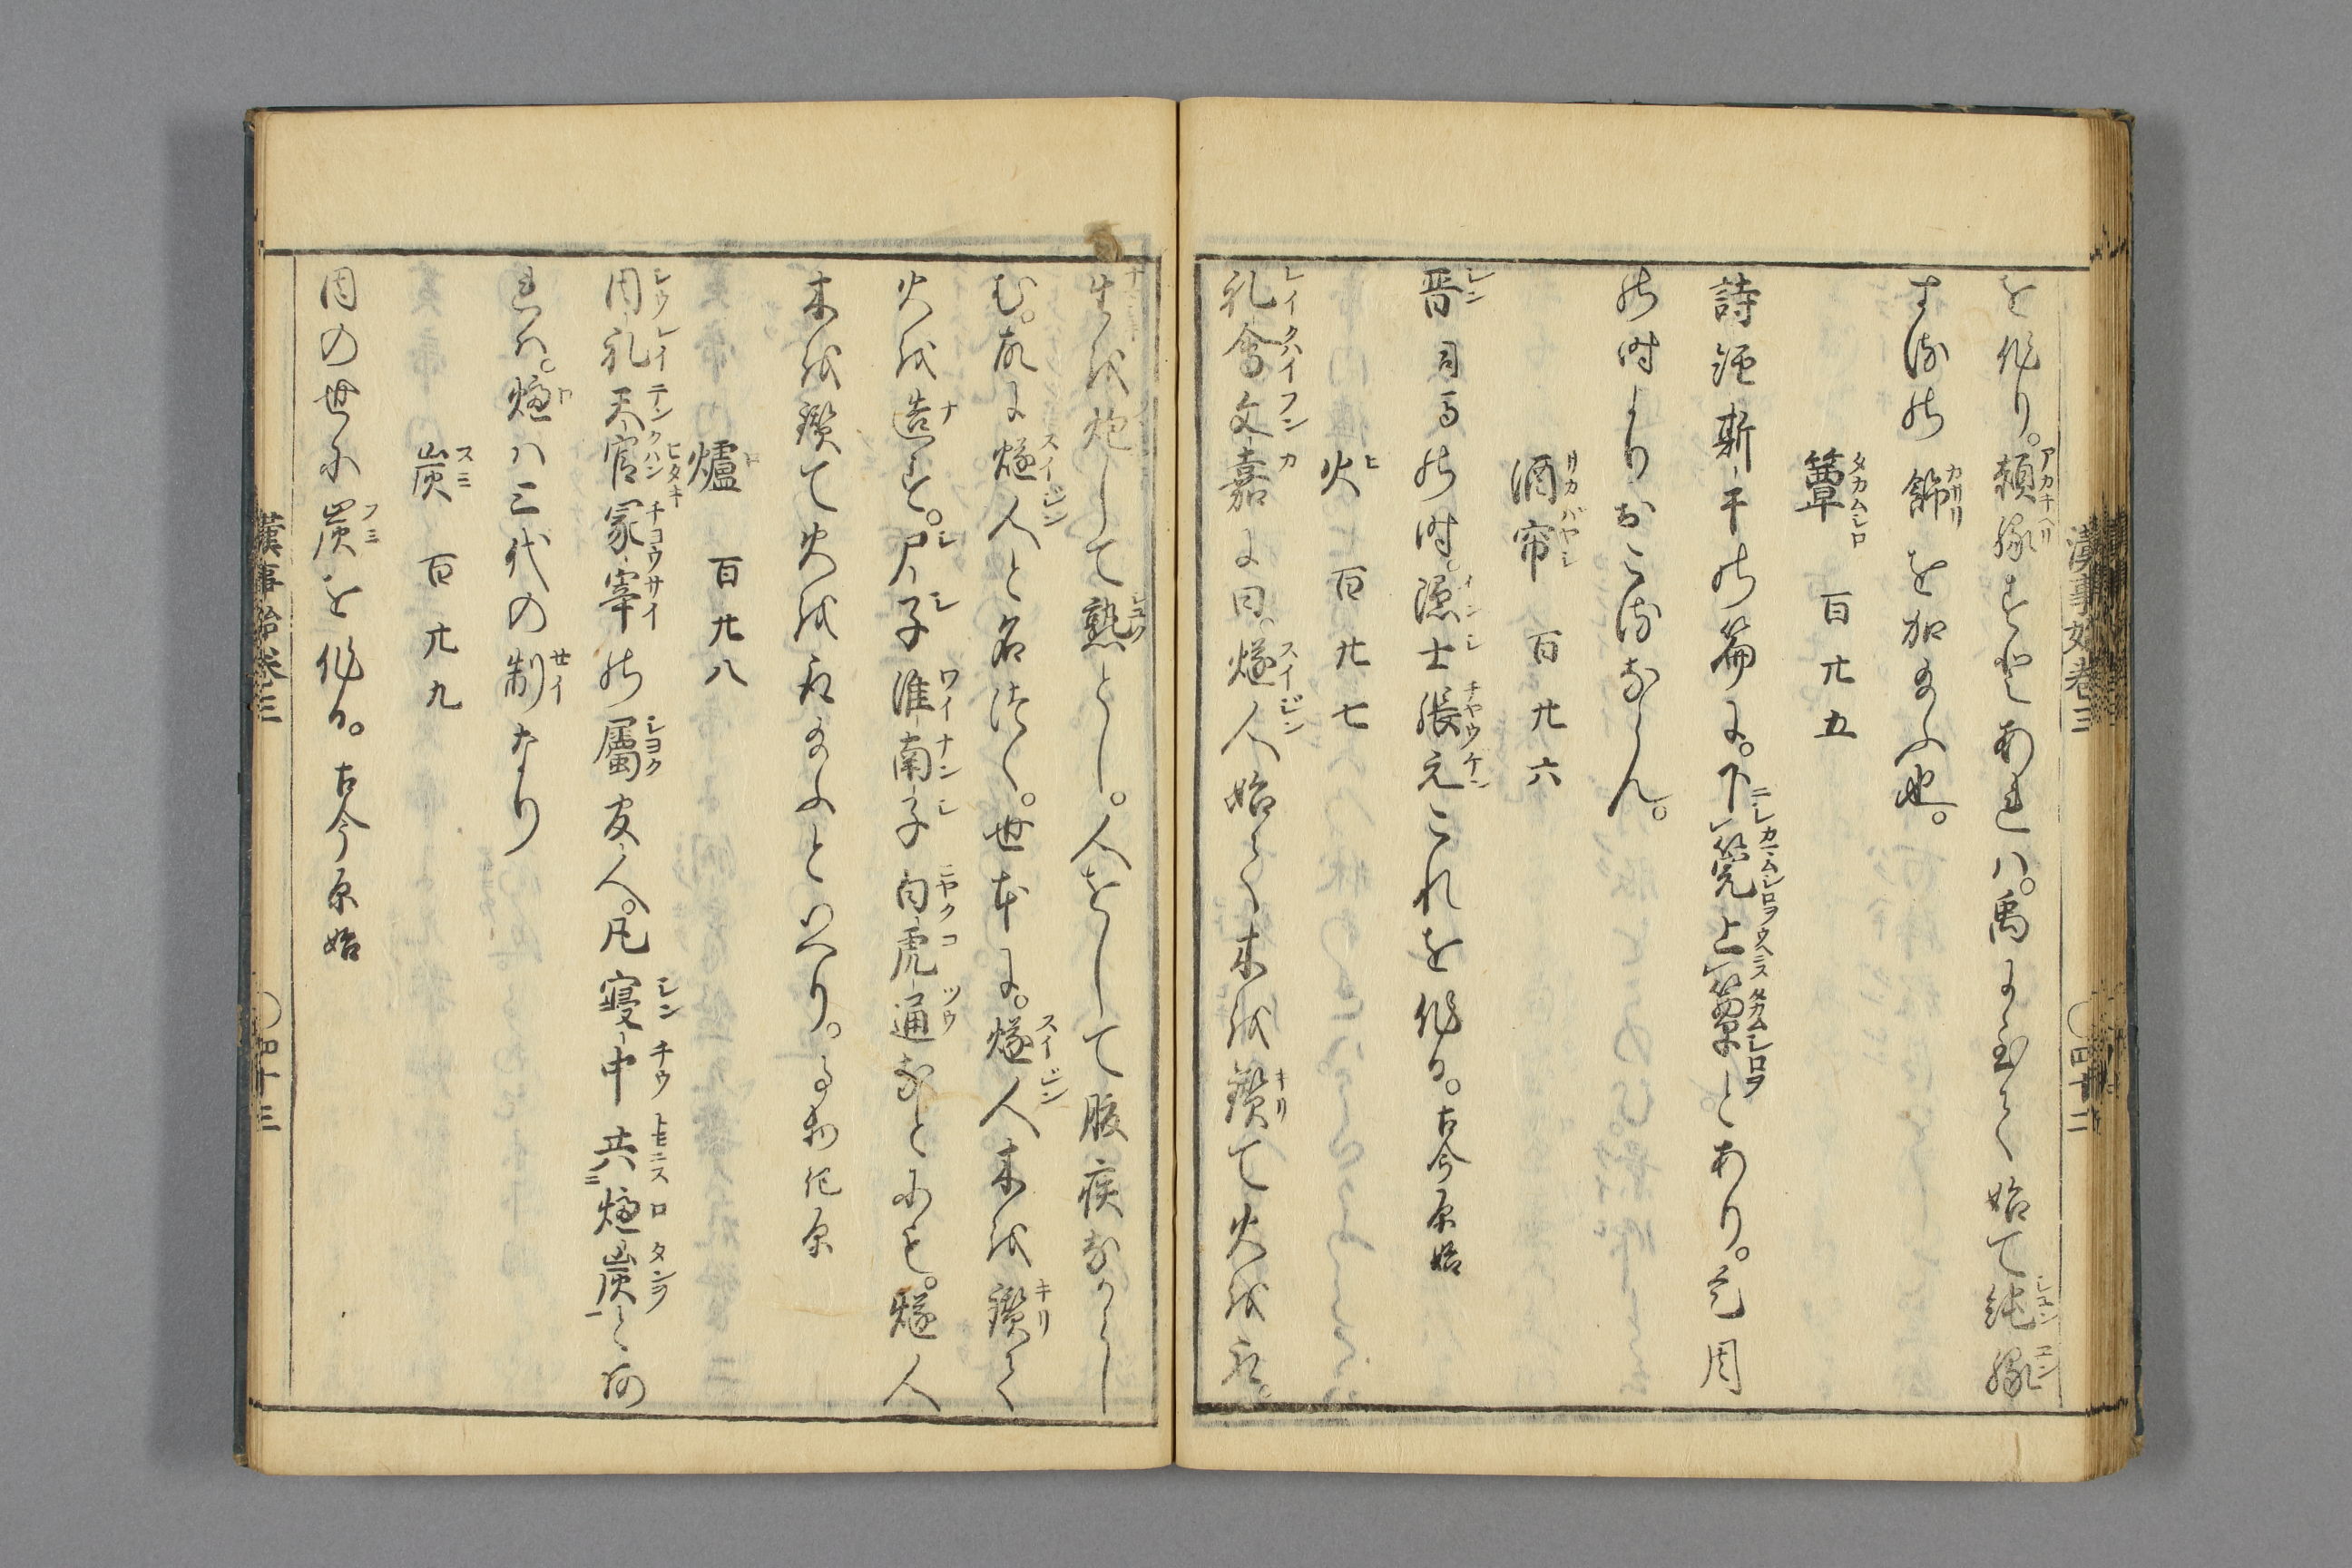 を作り。頳緣すとあれハ。禹に至て始て純緣
する此飾を加給ふ也。
簟　百廿五
詩經斯干の篇に。下莞上簟とあり。是周
の時よりおこるならん。
酒帘　百廿六
晋司馬の時。隱士張元これを作る。古今原始
火　百廿七
礼含文嘉に曰。燧人始て木を鑽て火を取。
生を炮して熟とし。人をして腹疾なからし
む。故に燧人と名づく。世本に。燧人木を鑽て
火を造と。尸子淮南子白虎通などにも。燧人
木を鑽て火を取給ふといへり。事物紀原
爐　百廿八
周礼天官冢宰の屬宮人。凡寝中共爐炭と有
されハ。爐ハ三代の制なり
炭　百廿九
周の世に炭を作る。古今原始
漢事始巻三　〇四十二
漢事始巻三　〇四十三